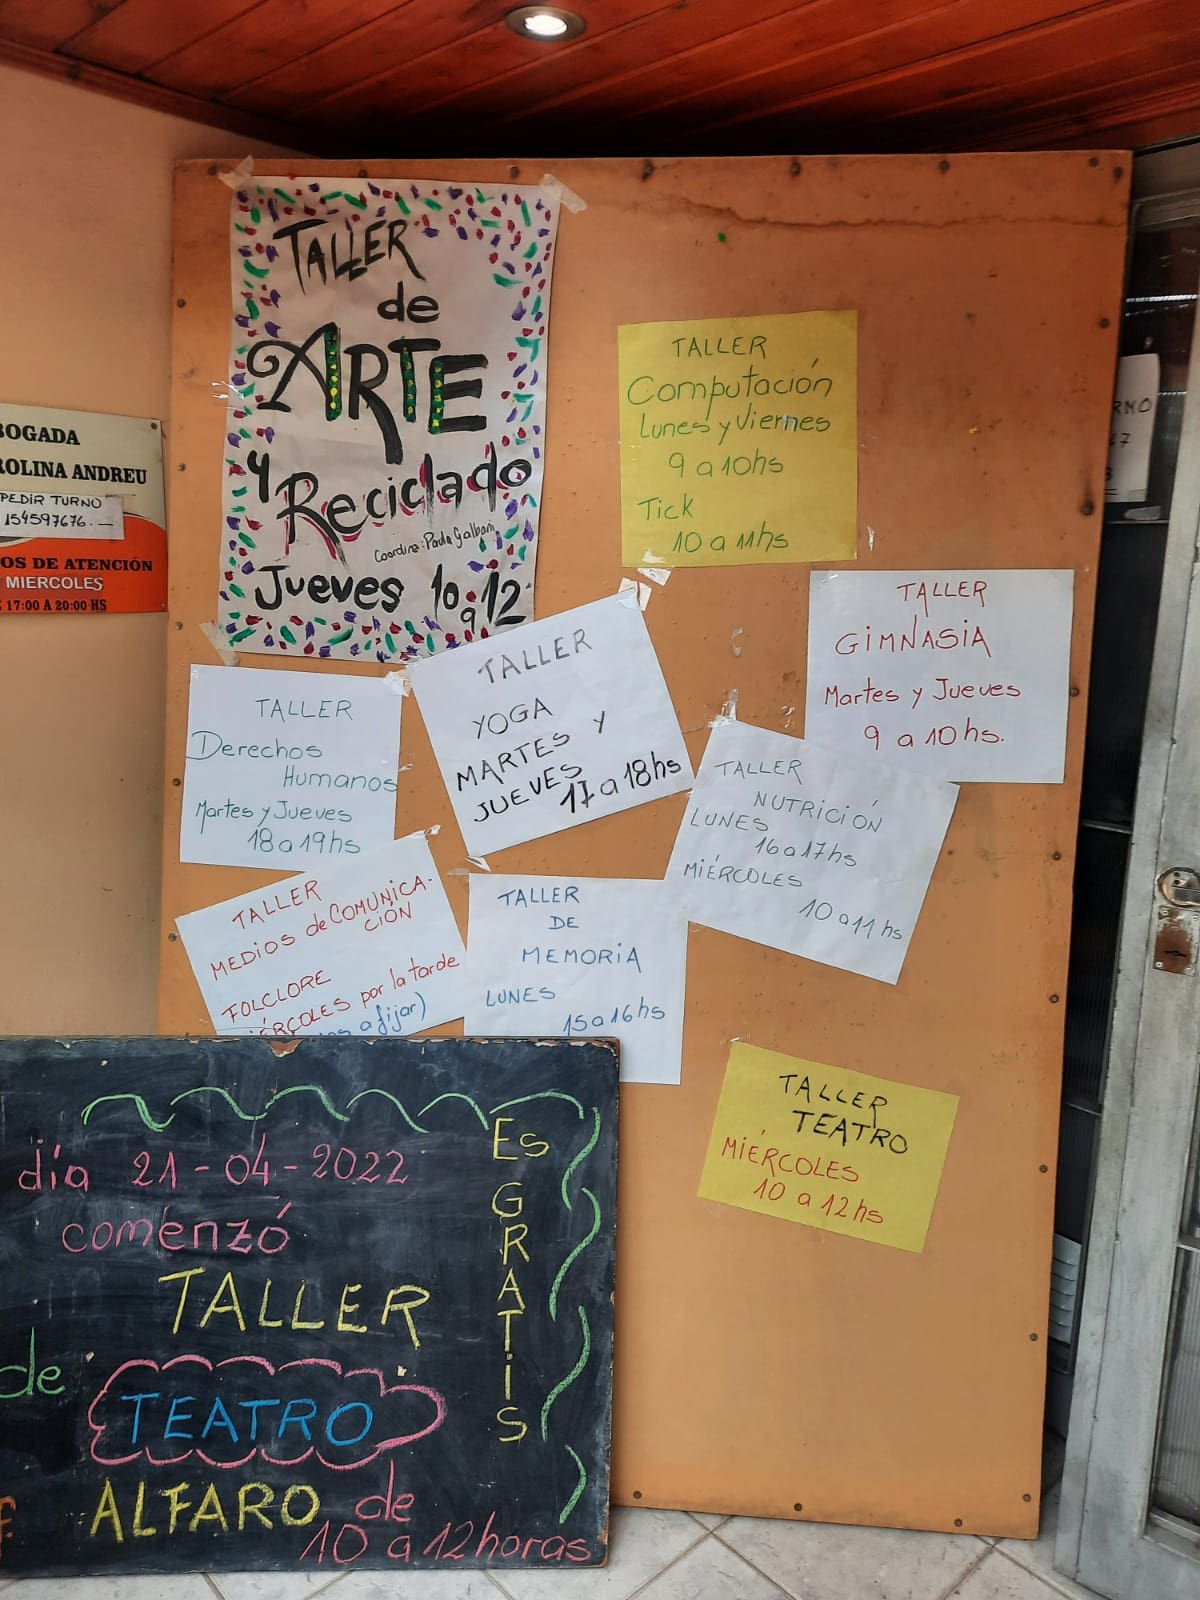 TALLER
de
ARTE
y Reciclado
Coordina: Paula Galbani
Jueves 10 a 12
TALLER
Computación
Lunes y Viernes
9 a 10hs
Tick
10 a 11hs
TALLER
GIMNASIA
Martes y Jueves
9 a 10hs.
TALLER
YOGA
MARTES y
JUEVES
17 a 18hs
TALLER
Derechos
Humanos
Martes y Jueves
18 a 19hs
TALLER
NUTRICIÓN
LUNES
16 a 17hs
MIÉRCOLES
10 a 11 hs
TALLER
MEDIOS de COMUNICA-
CIÓN
FOLCLORE
MIÉRCOLES por la tarde
a fijar)
TALLER
DE
MEMORIA
LUNES
15 a 16hs
TALLER
TEATRO
MIÉRCOLES
10 a 12hs
día 21-04-2022
comenzó
TALLER
de
TEATRO
ALFARO de
10 a 12 horas
Es
GRATIS
OGADA
ROLINA ANDREU
PEDIR TURNO
154597676.—
OS DE ATENCIÓN
MIERCOLES
17:00 A 20:00 HS
RNO